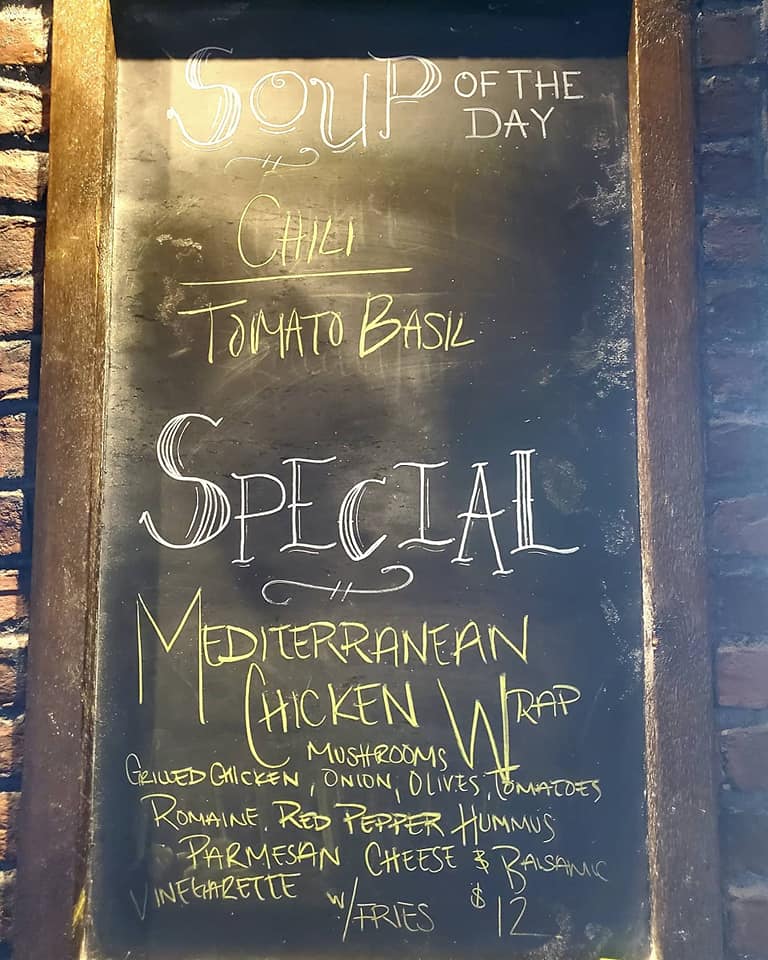 SOUP OF THE DAY
CHILI
TOMATO BASIL
SPECIAL
MEDITERRANEAN
CHICKEN WRAP
MUSHROOMS
GRILLED CHICKEN, ONION, OLIVES, TOMATOES
ROMAINE, RED PEPPER HUMMUS
PARMESAN CHEESE & BALSAMIC
VINEGARETTE w/FRIES $12